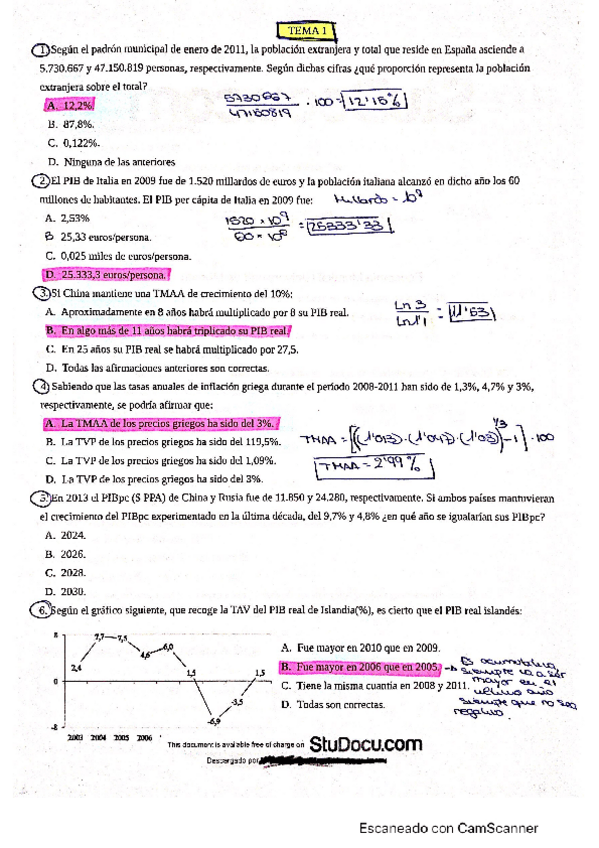 TEMA 1
1. Según el padrón municipal de enero de 2011, la población extranjera y total que reside en España asciende a
5.730.667 y 47.150.819 personas, respectivamente. Según dichas cifras ¿qué proporción representa la población
extranjera sobre el total?
A. 12,2%
5730667 / 47150819 · 100 = 12'15%
B. 87,8%.
C. 0,122%.
D. Ninguna de las anteriores
2. El PIB de Italia en 2009 fue de 1.520 millardos de euros y la población italiana alcanzó en dicho año los 60
millones de habitantes. El PIB per cápita de Italia en 2009 fue:
Millardo = 10⁹
A. 2,53%
B 25,33 euros/persona.
C. 0,025 miles de euros/persona.
D. 25.333,3 euros/persona.
= 25333'33
3. Si China mantiene una TMAA de crecimiento del 10%:
A. Aproximadamente en 8 años habrá multiplicado por 8 su PIB real.
B. En algo más de 11 años habrá triplicado su PIB real.
Ln 3 / Ln 1'1 = 11'53
C. En 25 años su PIB real se habrá multiplicado por 27,5.
D. Todas las afirmaciones anteriores son correctas.
4. Sabiendo que las tasas anuales de inflación griega durante el período 2008-2011 han sido de 1,3%, 4,7% y 3%,
respectivamente, se podría afirmar que:
A. La TMAA de los precios griegos ha sido del 3%.
B. La TVP de los precios griegos ha sido del 119,5%.
TMAA = [((1'013)·(1'047)·(1'03))^1/3 - 1] · 100
C. La TVP de los precios griegos ha sido del 1,09%.
TMAA = 2'99 %
D. La TVP de los precios griegos ha sido del 3%.
5. En 2013 el PIBpc ($ PPA) de China y Rusia fue de 11.850 y 24.280, respectivamente. Si ambos países mantuvieran
el crecimiento del PIBpc experimentado en la última década, del 9,7% y 4,8% ¿en qué año se igualarían sus PIBpc?
A. 2024.
B. 2026.
C. 2028.
D. 2030.
6. Según el gráfico siguiente, que recoge la TAV del PIB real de Islandia(%), es cierto que el PIB real islandés:
8
7,7
7,5
4,6
6,0
2,4
1,5
1,5
0
-3,5
-6,9
-8
2003 2004 2005 2006
A. Fue mayor en 2010 que en 2009.
B. Fue mayor en 2006 que en 2005.
C. Tiene la misma cuantía en 2008 y 2011.
D. Todas son correctas.
Es acumulativo
siempre va a ser
mayor en el
ultimo año
siempre que no sea
negativo.
This document is available free of charge on StuDocu.com
Descargado por
Escaneado con CamScanner